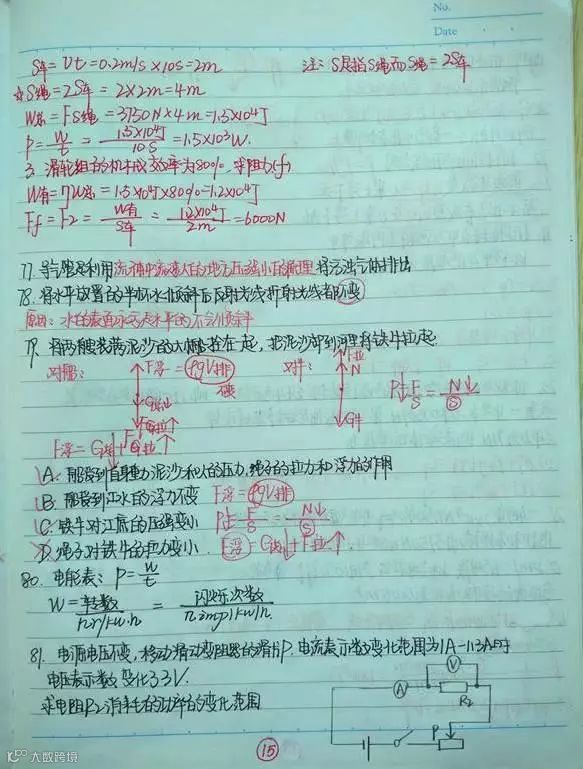 No.
Date
S车=Vt=0.2m/s×10s=2m 注:S是指S绳而S绳=2S车
☆S绳=2S车=2×2m=4m
W总=FS绳=3750N×4m=1.5×10⁴J
P=W/t=1.5×10⁴J/10S=1.5×10³W.
3. 滑轮组的机械效率为80%. 求阻力(f)
W有=ηW总=1.5×10⁴J×80%=1.2×10⁴J
Ff=F2=W有/S车=1.2×10⁴J/2m=6000N
77. 导气服是利用流体中流速大的地方压强小的原理将污浊气体排出
78. 将水平放置的半杯水倾斜后反射光线折射光线都不变
原因:水的表面永远是水平的不会倾斜
79. 将两艘装满泥沙的大船拴在一起,把泥沙卸到河里将铁牛拉起.
对船: F浮=ρgV排 对牛: F拉
不变 N P↓=F/S=N↓/S
G船↓
F拉↑ G牛
F浮=G船↓+F拉↑
A. 船受到自身重力泥沙和人的压力,绳子的拉力和浮力的作用
B. 船受到江水的浮力不变 F浮=ρgV排
C. 铁牛对江底的压强变小 P↓=F/S=N↓/S
D. 绳子对铁牛的拉力变小. F浮=G船↓+F拉↑.
80. 电能表: P=W/t
W=转数/nr/kw.h=闪烁次数/n imp/kw/h.
81. 电源电压不变,移动滑动变阻器的滑片P. 电流表示数变化范围为1A-1.3A时
电压表示数变化3.3V.
求电阻R₂消耗的功率的变化范围
V
A
R₂
P
15
大数跨境